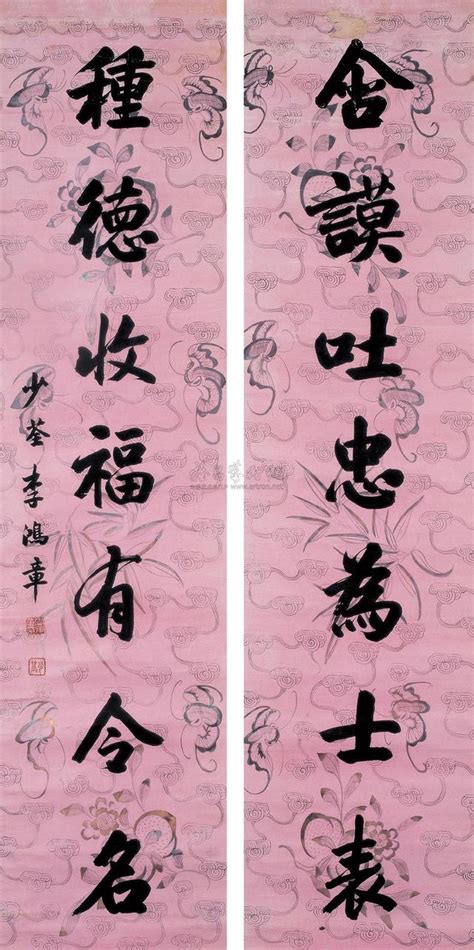 含謨吐忠為士表
種德收福有令名
少荃李鴻章
www.artron.net